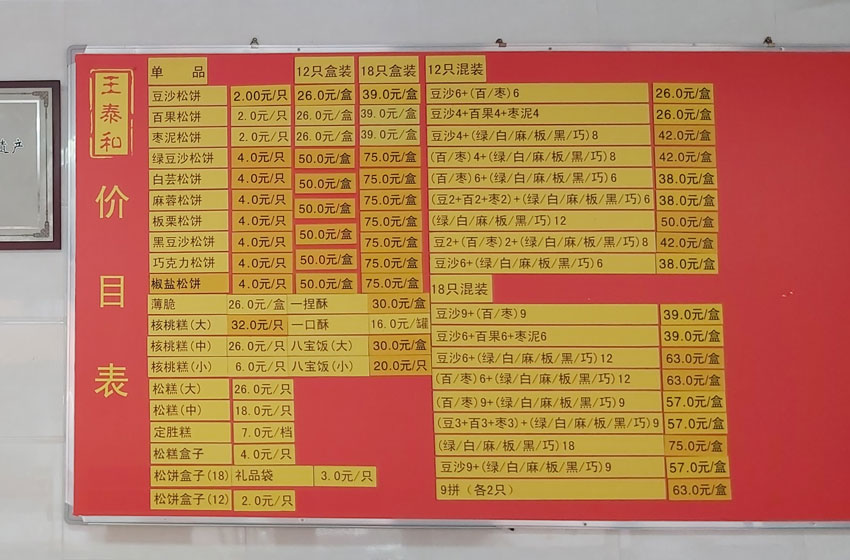 遗产
王泰和
价目表
单 品 12只盒装 18只盒装
豆沙松饼 2.00元/只 26.0元/盒 39.0元/盒
百果松饼 2.0元/只 26.0元/盒 39.0元/盒
枣泥松饼 2.0元/只 26.0元/盒 39.0元/盒
绿豆沙松饼 4.0元/只 50.0元/盒 75.0元/盒
白芸松饼 4.0元/只 50.0元/盒 75.0元/盒
麻蓉松饼 4.0元/只 50.0元/盒 75.0元/盒
板栗松饼 4.0元/只 50.0元/盒 75.0元/盒
黑豆沙松饼 4.0元/只 50.0元/盒 75.0元/盒
巧克力松饼 4.0元/只 50.0元/盒 75.0元/盒
椒盐松饼 4.0元/只 50.0元/盒 75.0元/盒
薄脆 26.0元/盒 一捏酥 30.0元/盒
核桃糕(大) 32.0元/只 一口酥 16.0元/罐
核桃糕(中) 26.0元/只 八宝饭(大) 30.0元/盒
核桃糕(小) 6.0元/只 八宝饭(小) 20.0元/只
松糕(大) 26.0元/只
松糕(中) 18.0元/只
定胜糕 7.0元/档
松糕盒子 4.0元/只
松饼盒子(18) 礼品袋 3.0元/只
松饼盒子(12) 2.0元/只
12只混装
豆沙6+(百/枣)6 26.0元/盒
豆沙4+百果4+枣泥4 26.0元/盒
豆沙4+(绿/白/麻/板/黑/巧)8 42.0元/盒
(百/枣)4+(绿/白/麻/板/黑/巧)8 42.0元/盒
(百/枣)6+(绿/白/麻/板/黑/巧)6 38.0元/盒
(豆2+百2+枣2)+(绿/白/麻/板/黑/巧)6 38.0元/盒
(绿/白/麻/板/黑/巧)12 50.0元/盒
豆2+(百/枣)2+(绿/白/麻/板/黑/巧)8 42.0元/盒
豆沙6+(绿/白/麻/板/黑/巧)6 38.0元/盒
18只混装
豆沙9+(百/枣)9 39.0元/盒
豆沙6+百果6+枣泥6 39.0元/盒
豆沙6+(绿/白/麻/板/黑/巧)12 63.0元/盒
(百/枣)6+(绿/白/麻/板/黑/巧)12 63.0元/盒
(百/枣)9+(绿/白/麻/板/黑/巧)9 57.0元/盒
(豆3+百3+枣3)+(绿/白/麻/板/黑/巧)9 57.0元/盒
(绿/白/麻/板/黑/巧)18 75.0元/盒
豆沙9+(绿/白/麻/板/黑/巧)9 57.0元/盒
9拼(各2只) 63.0元/盒